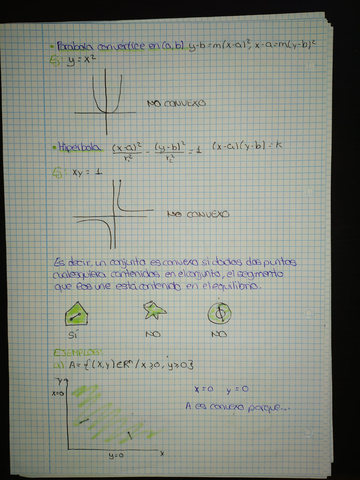 • Parábola convértice en (a,b) y-b=m(x-a)², x-a=m(y-b)²
Ej: y=x²
NO CONVEXO
• Hipérbola (x-a)²/r₁² - (y-b)²/r₂² = 1 (x-a)(y-b)=k
Ej: xy=1
NO CONVEXO
Es decir, un conjunto es convexo si dados dos puntos
cualesquiera contenidos en el conjunto, el segmento
que los une está contenido en el equilibrio.
SÍ NO NO
EJEMPLOS:
a) A={(x,y)∈R² / x≥0, y≥0}
y
x=0
x=0 y=0
A es convexo porque...
y=0 x